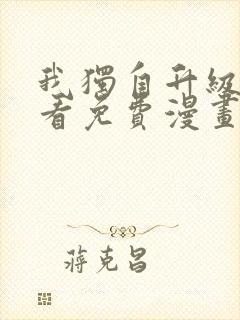 我獨自升級
看免費漫畫
蔣克昌